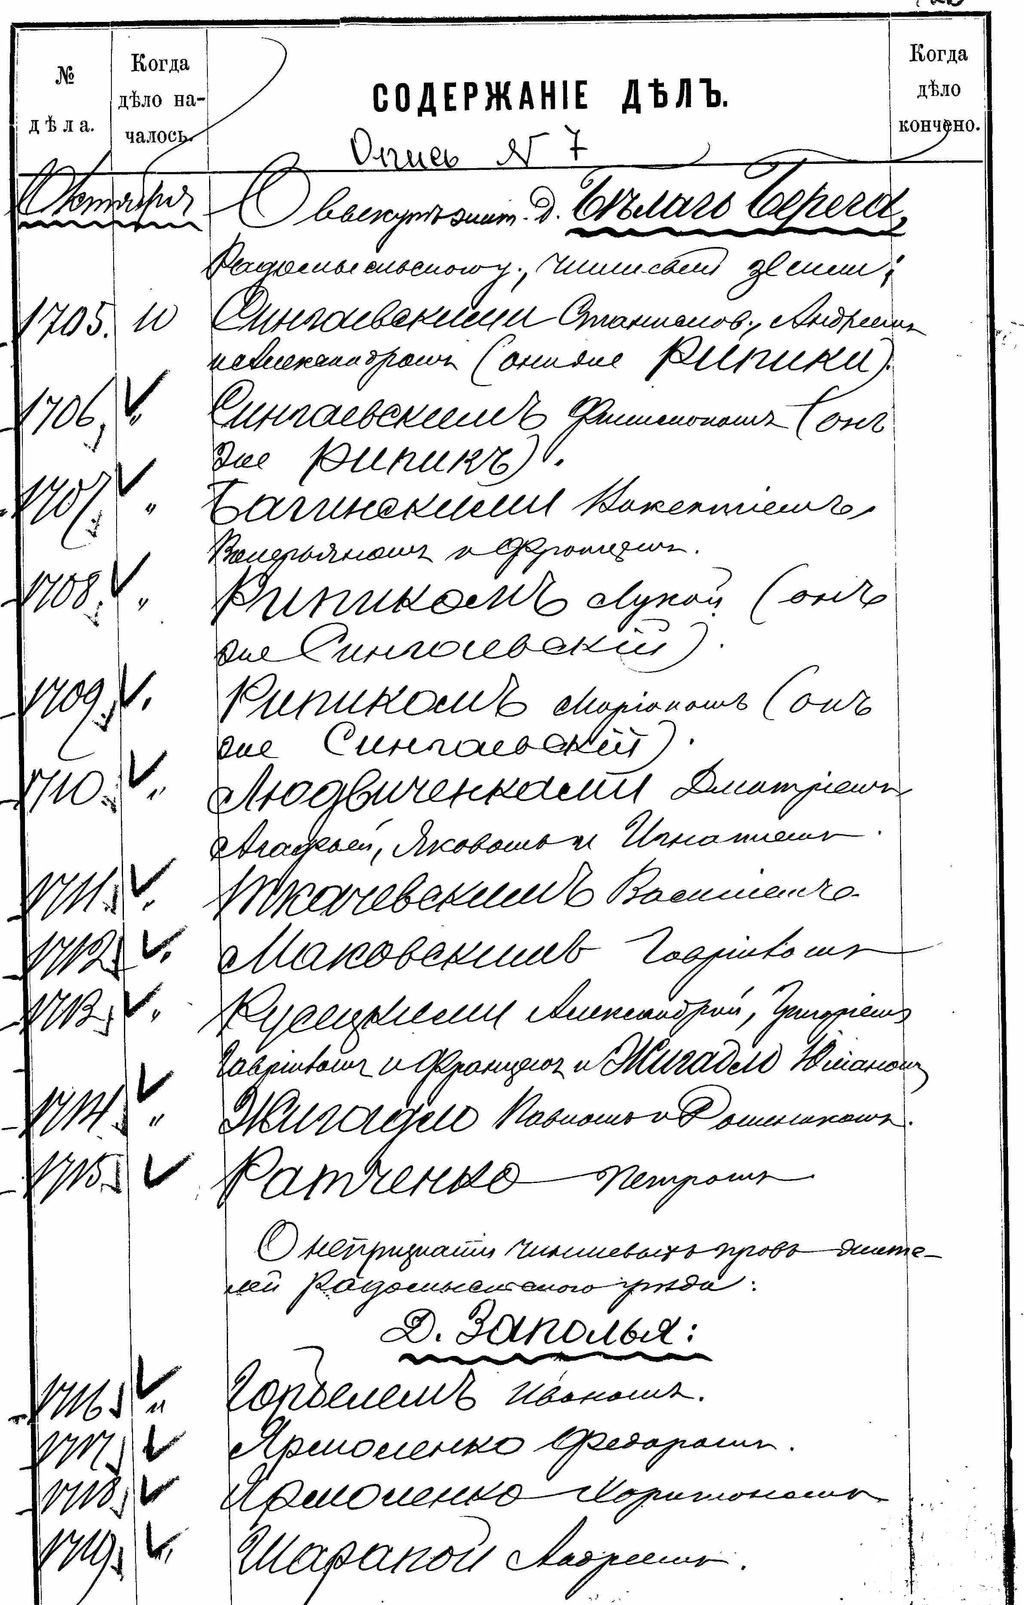 № дѣла.
Когда дѣло началось.
СОДЕРЖАНІЕ ДѢЛЪ.
Когда дѣло кончено.
Опись № 7
Октября О выкупѣ жит. д. Бѣлаго Берега,
Радомысльскому у., чиншевой земли:
1705. 10 Сингаевскими Станислав., Андреемъ
и Александромъ (они же Рипики).
1706, " Сингаевскимъ Филимономъ (онъ
же Рипикъ).
1707, " Багинскими Викентіемъ,
Валерьяномъ и Францемъ.
1708, " Рипикомъ Лукой (онъ
же Сингаевскій).
1709, " Рипикомъ Маріаномъ (онъ
же Сингаевскій).
1710. " Людвиченками Дмитріемъ
Агафьей, Яковомъ и Игнатіемъ.
1711. " Ткачевскимъ Василіемъ
1712, " Маковскимъ Гавріиломъ
1713, " Кусецкими Александрой, Григоріемъ
Гавріиломъ и Францемъ и Жигадло Юліаномъ
1714. " Жигадло Павломъ и Доминикомъ.
1715. Ратченко Петромъ
О непризнаніи чиншевыхъ правъ жите-
лей Радомысльскаго уѣзда:
Д. Заполья:
1716. " Горбелемъ Иваномъ.
1717, Ярмоленко Федоромъ.
1718, Ярмоленко Харитономъ
1719. " Шарапой Андреемъ.